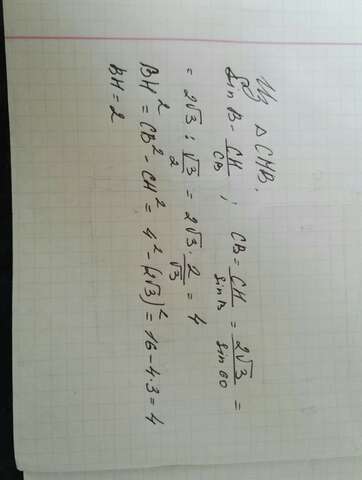 Из △CHB.
sin B = CH/CB ; CB = CH/sin B = 2√3/sin 60 =
= 2√3 : √3/2 = 2√3 · 2/√3 = 4
BH² = CB² - CH² = 4² - (2√3)² = 16 - 4·3 = 4
BH = 2